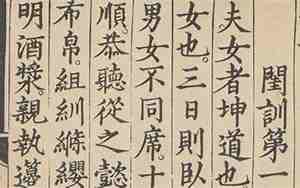 閨訓第一
夫女者坤道也
女也。三日則臥
男女不同席。十
順。恭聽從之懿
布帛。組紃絛纓
明酒漿。親執籩